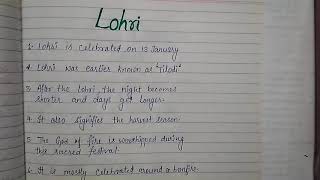 Lohri
1. Lohri is celebrated on 13 January
2. Lohri was earlier known as "Tilodi"
3. After the lohri, the night becomes
shorter and days get longer.
4. It also signifies the harvest season
5. The God of fire is worshipped during
the sacred festival.
6. It is mostly celebrated around a bonfire.